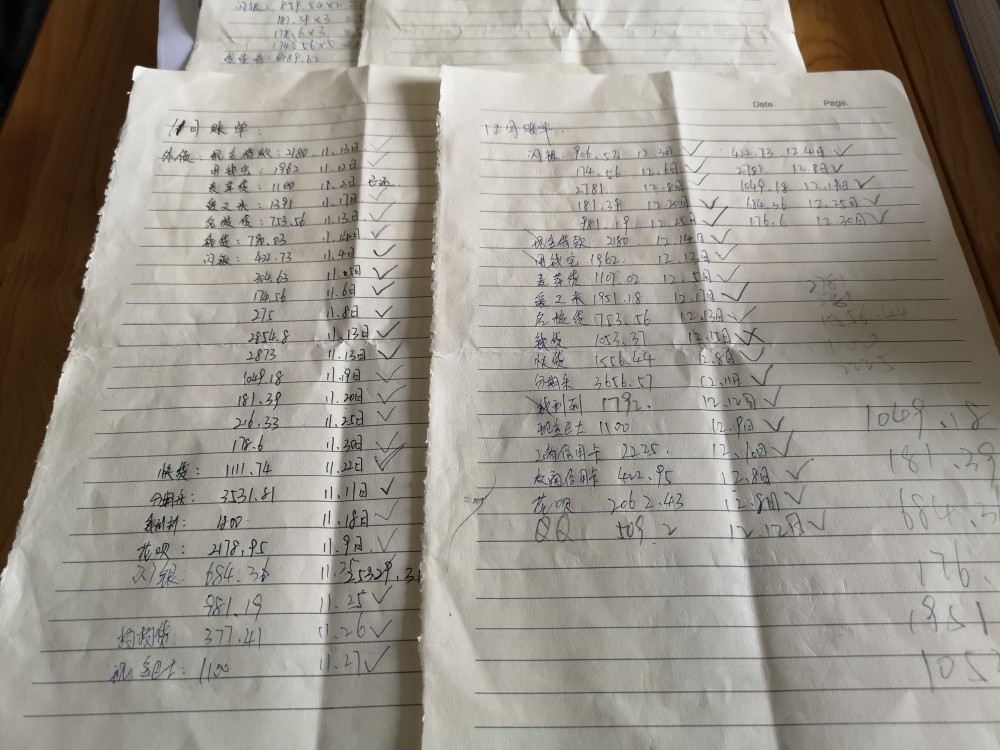 闪银: 859.54×2 =
181.39×3 =
178.6×3 =
174.56×5 =
11月账单:
外债: 现金借款: 2180. 11.13日
用钱宝: 1962 11.12日
1100 11.2日 已还
爱又米: 1391 11.17日
名校贷: 753.56 11.13日
钱贷: 11.14日
闪银: 422.73 11.4日
11.05日
174.56 11.6日
275 11.8日
2854.8 11.13日
2873 11.13日
1049.18 11.19日
181.39 11.20日
216.33 11.25日
178.6 11.30日
快贷: 1111.74 11.22日
分期乐: 3531.81 11.11日
11.18日
花呗: 2178.95 11.9日
闪银: 684.36
981.19 11.25
377.41 11.26
现金巴士: 1100 11.27
Date. Page.
12月账单.
闪银 906.52 12.3日 422.73 12.4日
174.56 12.6日 2781 12.8日
2781 12.8日 1049.18 12.19日
181.39 12.20日 684.36 12.25日
981.19 12.25日 176.6 12.30日
现金借款 2180 12.14日
用钱宝 1962. 12.12日
12.5日
爱又米 1951.18 12.17日
名校贷 753.56 12.13日
钱贷 1053.37 12.15日
快贷 1556.44 12.8日
分期乐 3656.57 12.11日
1792. 12.12日
现金巴士 1100 12.9日
工商信用卡 2225. 12.10日
422.95 12.8日
花呗 2062.43 12.8日
QQ 509.2 12.12日
1049.18
181.39
684.3
176.
1951
105